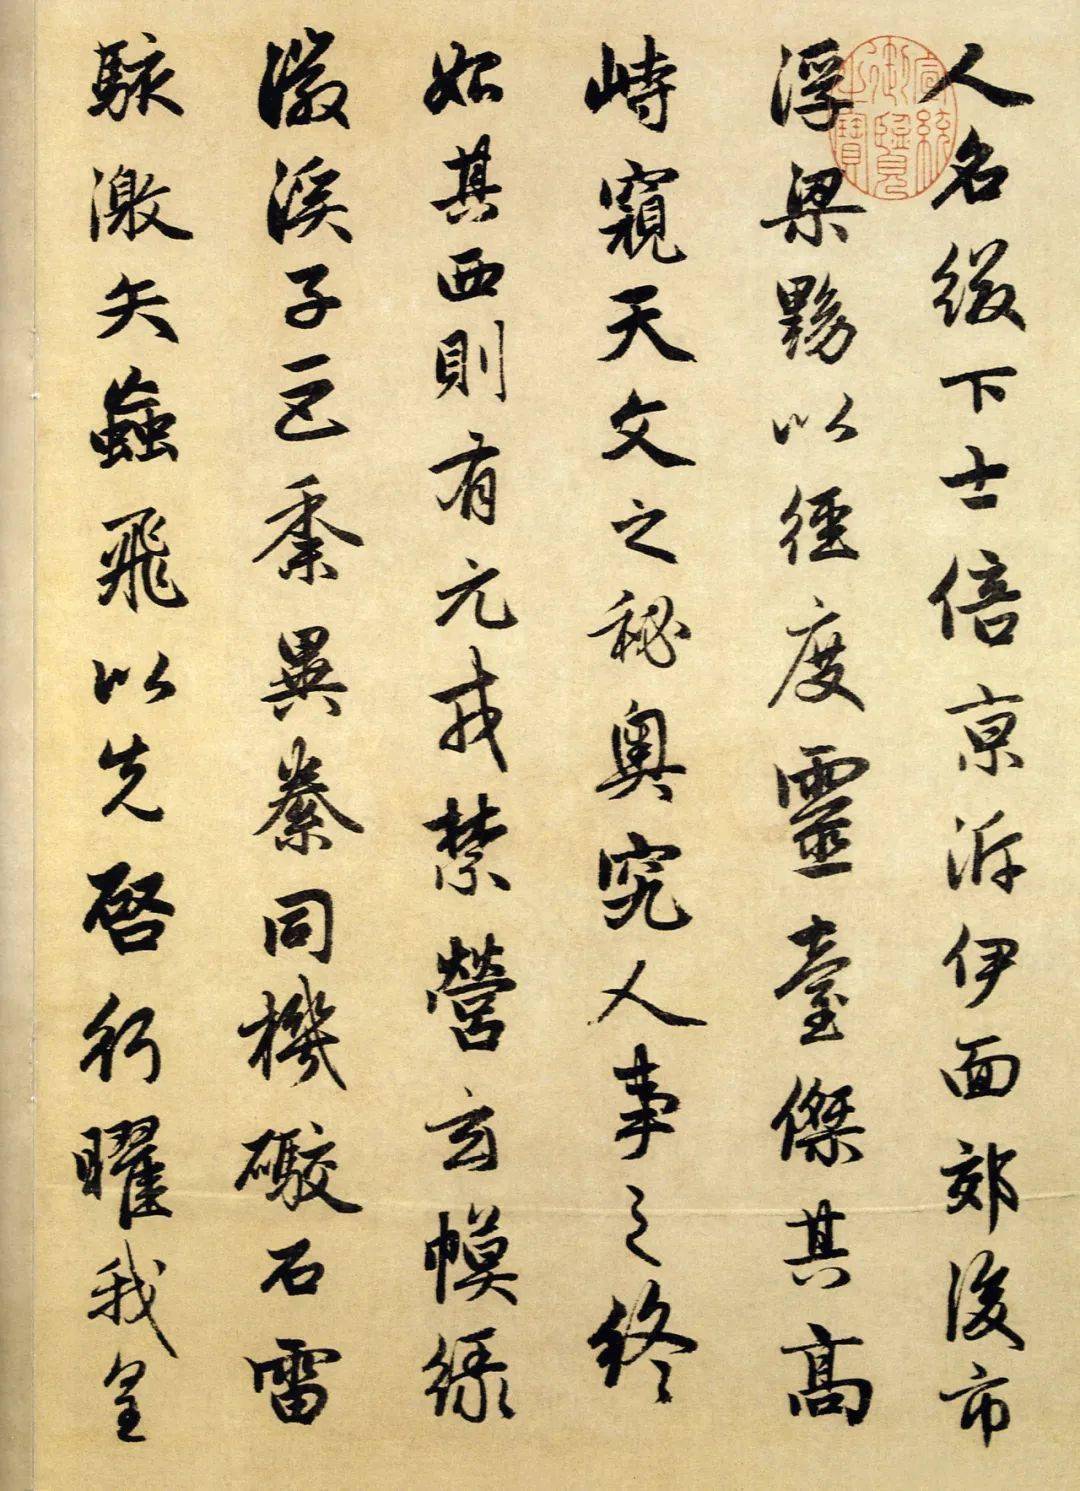 人名綴下士倍京泝伊面郊後市
浮梁黝以徑度靈臺傑其高
峙窺天文之秘奧究人事之終
始其西則有元戎禁營玄幙綠
徽溪子巨黍異絭同機礮石雷
駭激矢蝱飛以先啓行曜我皇
宣統御覽之寶